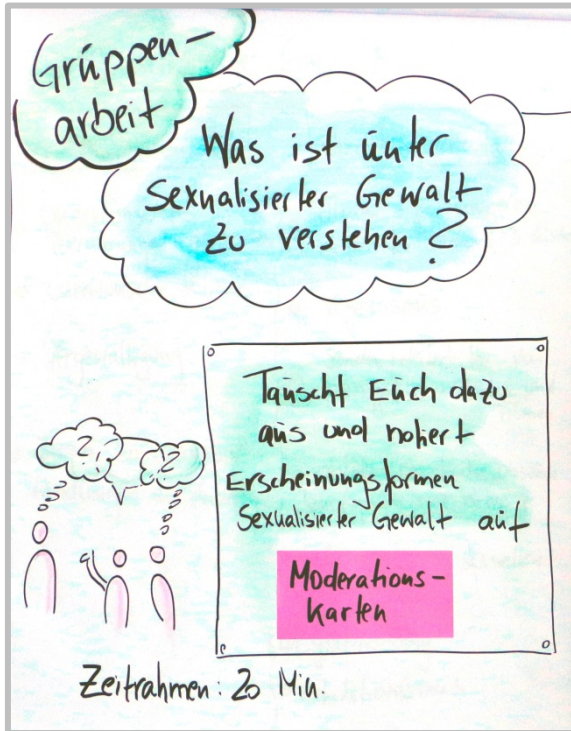 Gruppen-
arbeit
Was ist unter
Sexualisierter Gewalt
zu verstehen?
?
?
Tauscht Euch dazu
aus und notiert
Erscheinungsformen
Sexualisierter Gewalt auf
Moderations-
karten
Zeitrahmen: 20 Min.